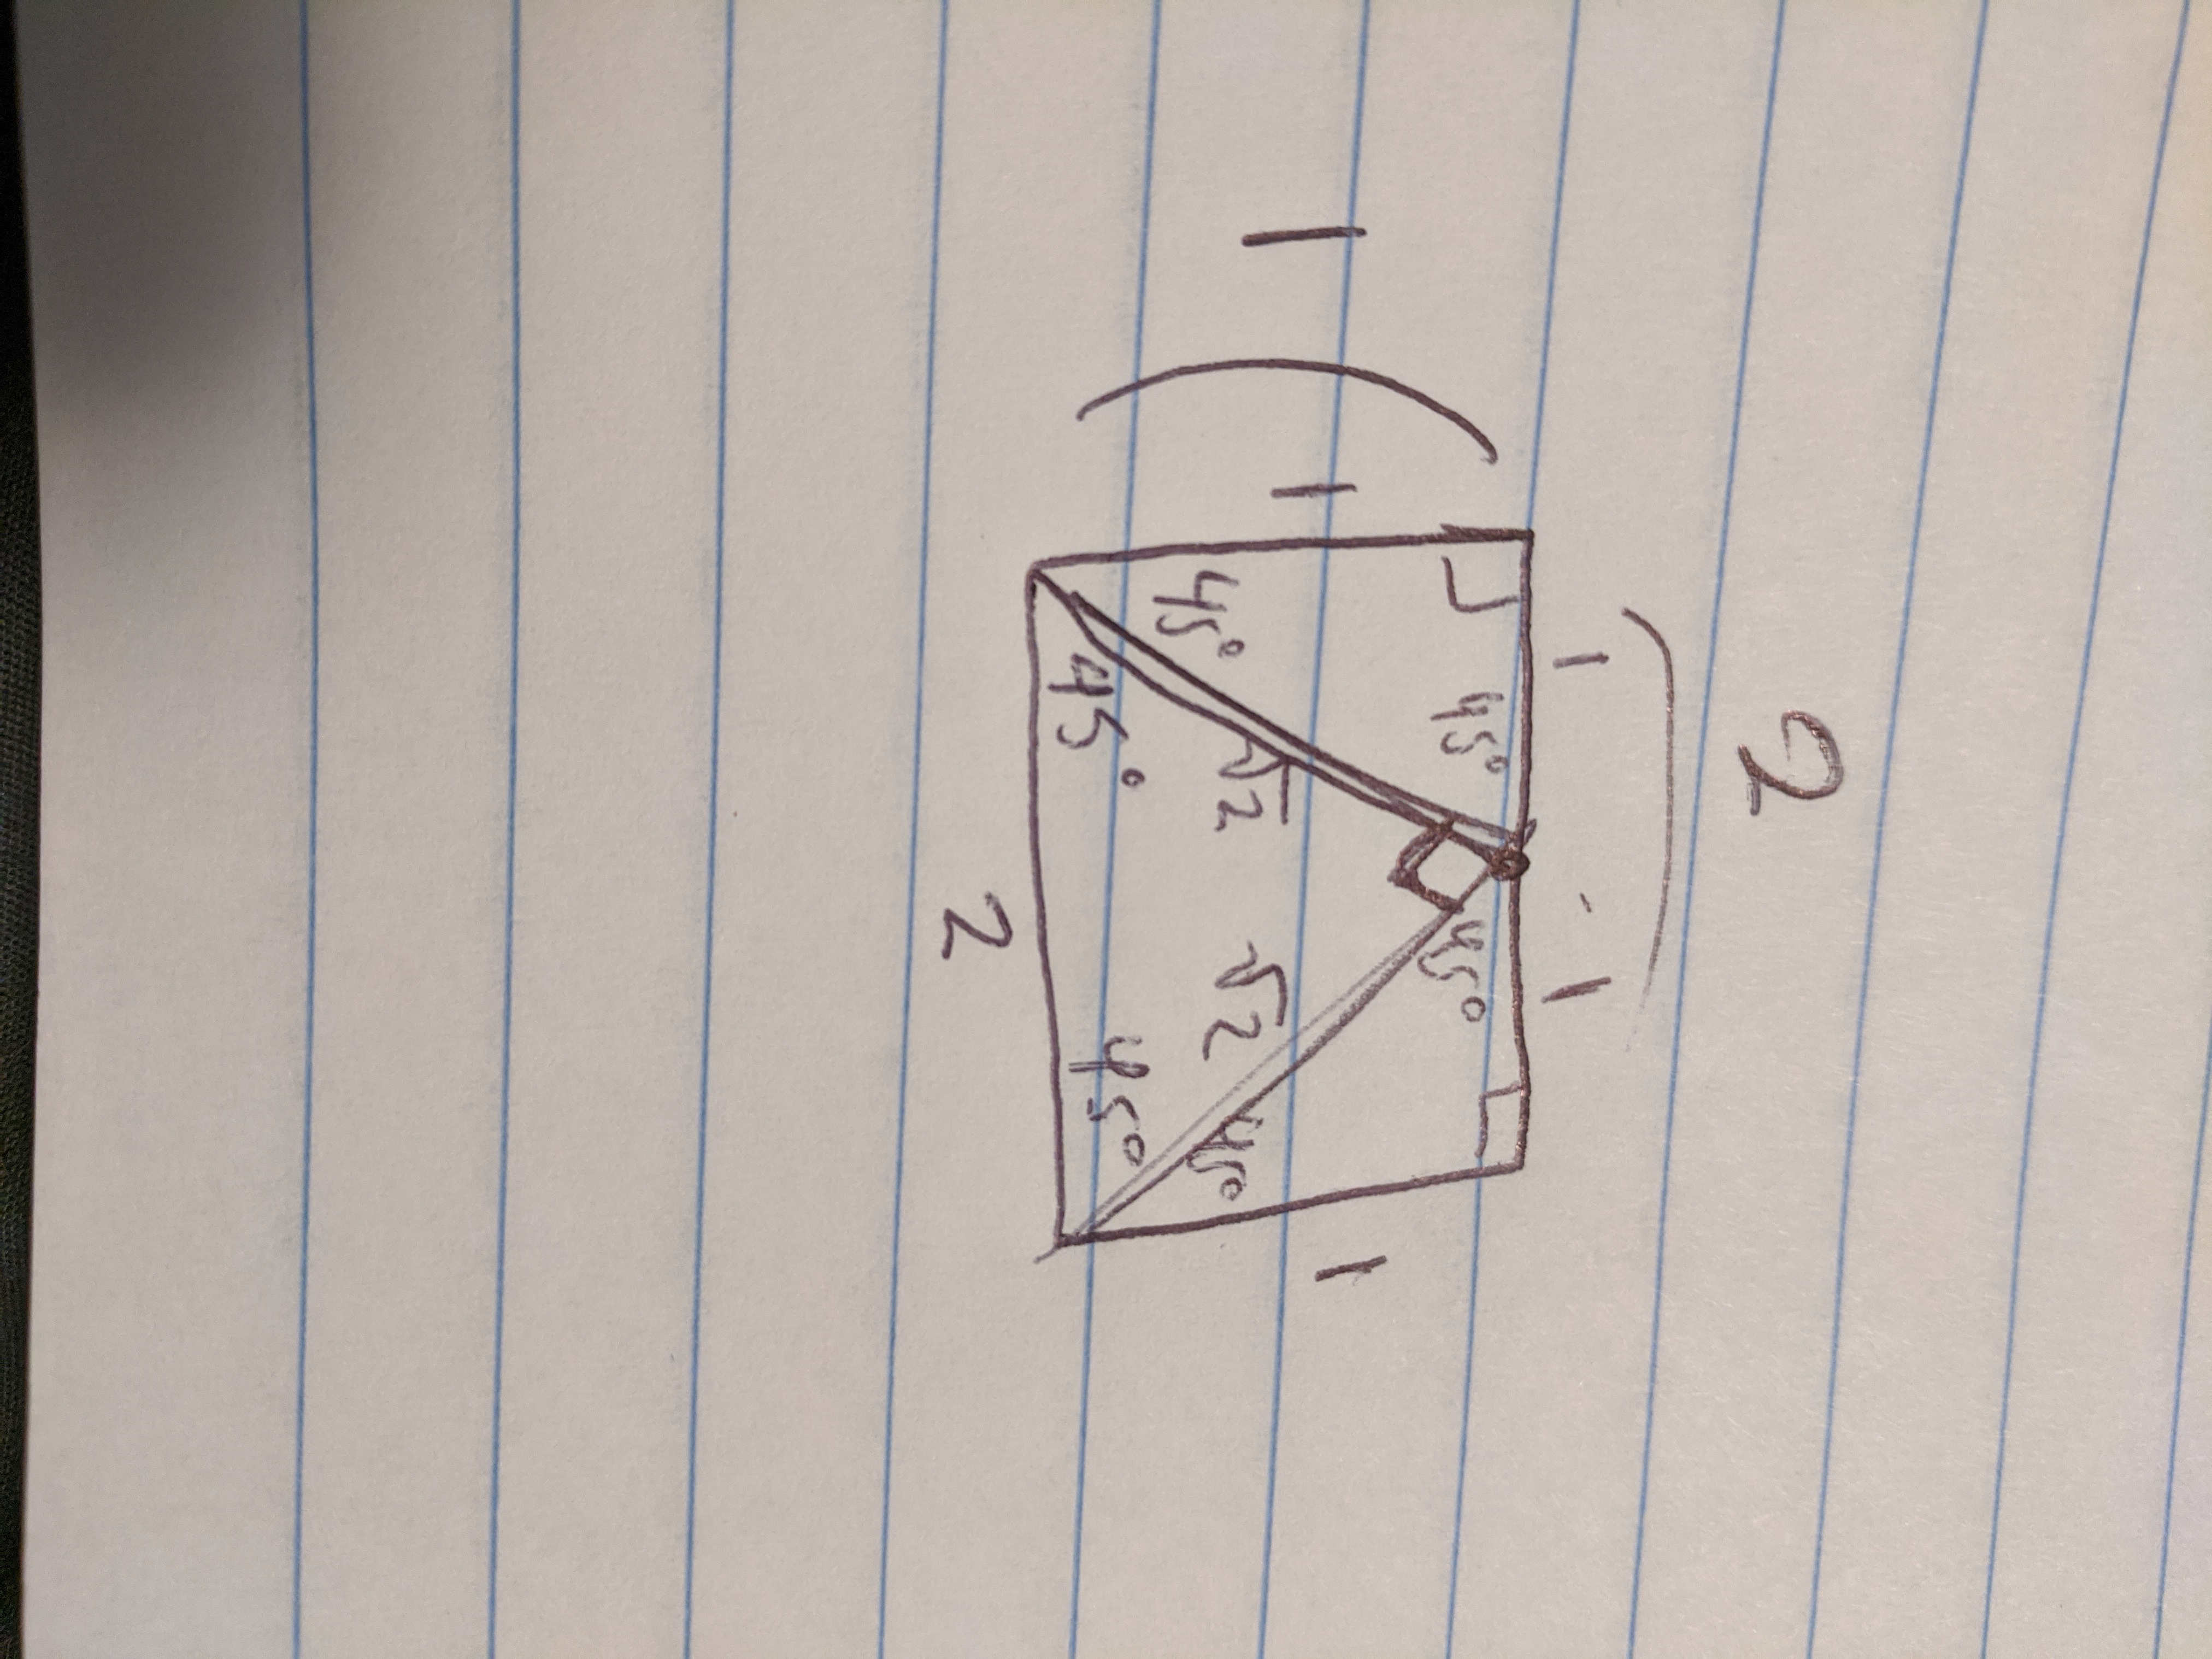 2
1 1
45° 45°
1 1 1
√2 √2
45° 45°
45° 45°
2